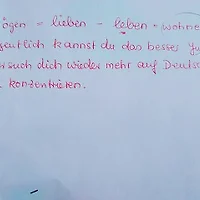 ögen = lieben - leben = wohne
gentlich kannst du das besser
such dich wieder mehr auf Deutsc
konzentrieren.